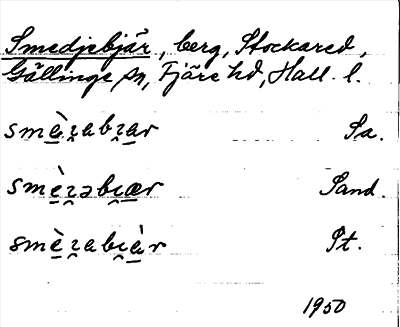 Smedjebjär, berg, Stockared,
Gällinge sn, Fjäre hd, Hall. l.
smɛ̀ɀabɩar Sa.
smèɀəbɩær Sand.
smèɀabɩàr Pt.
1950